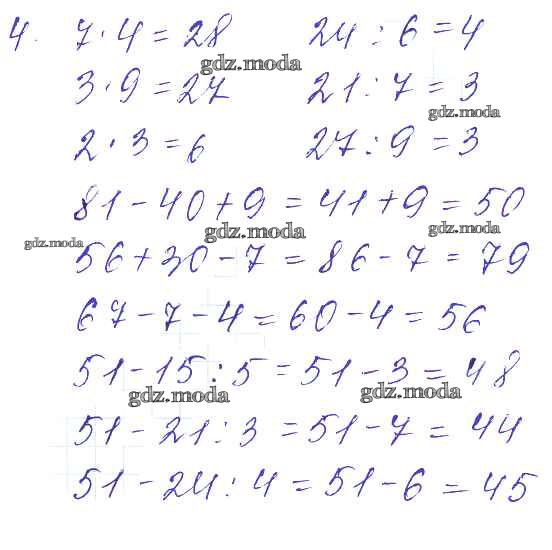 4. 7·4=28 24:6=4
gdz.moda
3·9=27 21:7=3
gdz.moda
2·3=6 27:9=3
81-40+9=41+9=50
gdz.moda gdz.moda
gdz.moda
56+30-7=86-7=79
67-7-4=60-4=56
51-15:5=51-3=48
gdz.moda gdz.moda
51-21:3=51-7=44
51-24:4=51-6=45